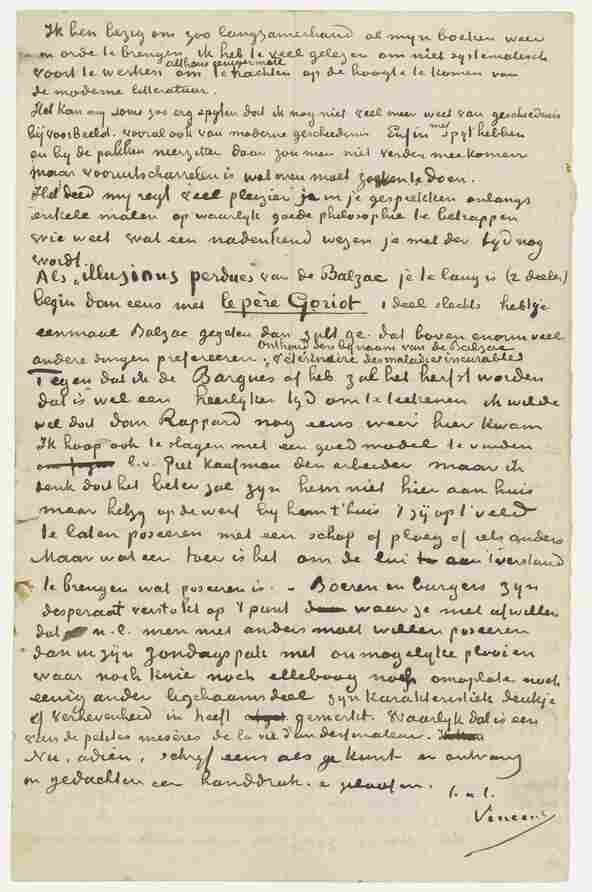 Ik ben bezig om zoo langzamerhand al myn boeken weer
in orde te brengen, ik heb te veel gelezen om niet systematisch
althans eenigermate
voort te werken om te trachten op de hoogte te komen van
de moderne litteratuur.
Het kan my soms zoo erg spyten dat ik nog niet veel meer weet van geschiedenis
bijvoorbeeld. vooral ook van moderne geschiedenis Enfin met spyt hebben
en by de pakken neerzitten daar zou men niet verder mee komen
maar vooruitscharrelen is wat men moet zoeken te doen.
Het deed my regt veel plezier je in je gesprekken onlangs
enkele malen op waarlyk goede philosophie te betrappen
wie weet wat een nadenkend wezen je met der tyd nog
wordt.
Als „illusions perdues" van de Balzac je te lang is (2 deelen)
begin dan eens met le père Goriot 1 deel slechts hebt je
eenmaal Balzac gegeten dan zult ge dat boven enorm veel
Onthoud den bijnaam van de Balzac
andere dingen prefereeren. „vétérinaire des maladies incurables"
Tegen dat ik de Bargues af heb zal het herfst worden
dat is wel een heerlyken tyd om te teekenen ik wilde
wel dat dan Rappard nog eens weer hier kwam
Ik hoop ook te slagen met een goed model te vinden
b.v. Piet Kaufman den arbeider maar ik
denk dat het beter zal zyn hem niet hier aan huis
maar hetzy op de werf by hem t'huis 't zij op 't veld
te laten poseeren met een schop of ploeg of iets anders
Maar wat een toer is het om de lui aan 't verstand
te brengen wat poseeren is. - Boeren en burgers zyn
desperaat verstokt op 't punt waar ze niet af willen
dat n.l. men niet anders moet willen poseeren
dan in zijn zondagspak met onmogelyke plooien
waar noch knie noch elleboog noch omoplate noch
eenig ander lighaamsdeel zyn karakteristiek deukje
of verhevenheid in heeft gemerkt. Waarlyk dat is een
van de petites misères de la vie d'un dessinateur.
Nu, adieu, schryf eens als ge kunt en ontvang
in gedachten een handdruk. & geloof me
t. à t.
Vincent